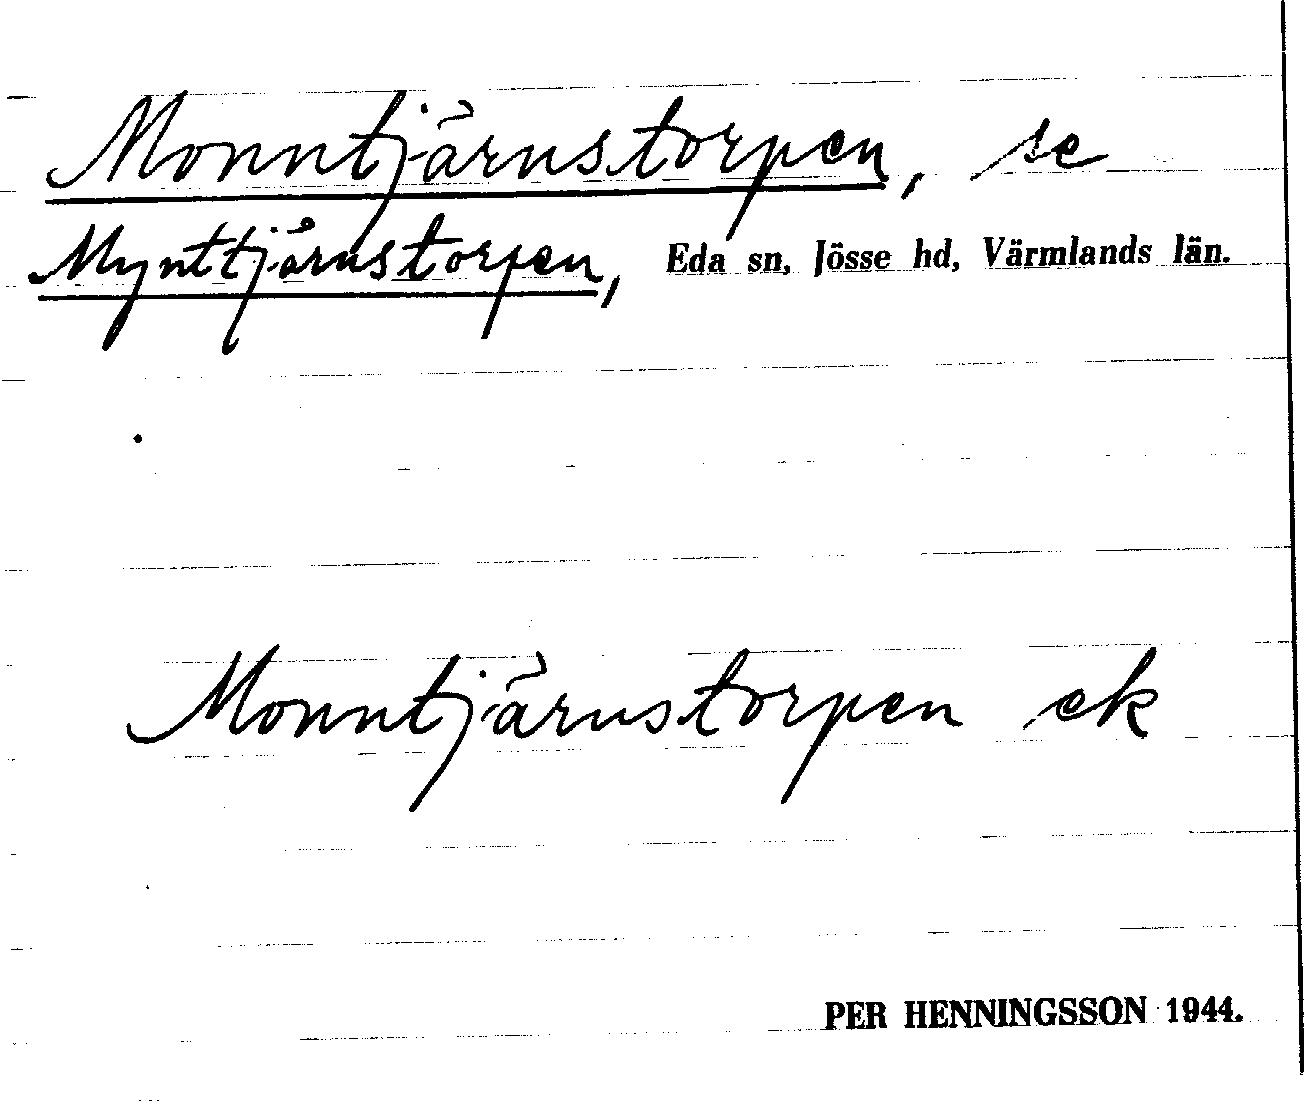 Monntjärnstorpen, se
Mynttjärnstorpen, Eda sn, Jösse hd, Värmlands län.
Monntjärnstorpen ek
PER HENNINGSSON 1944.